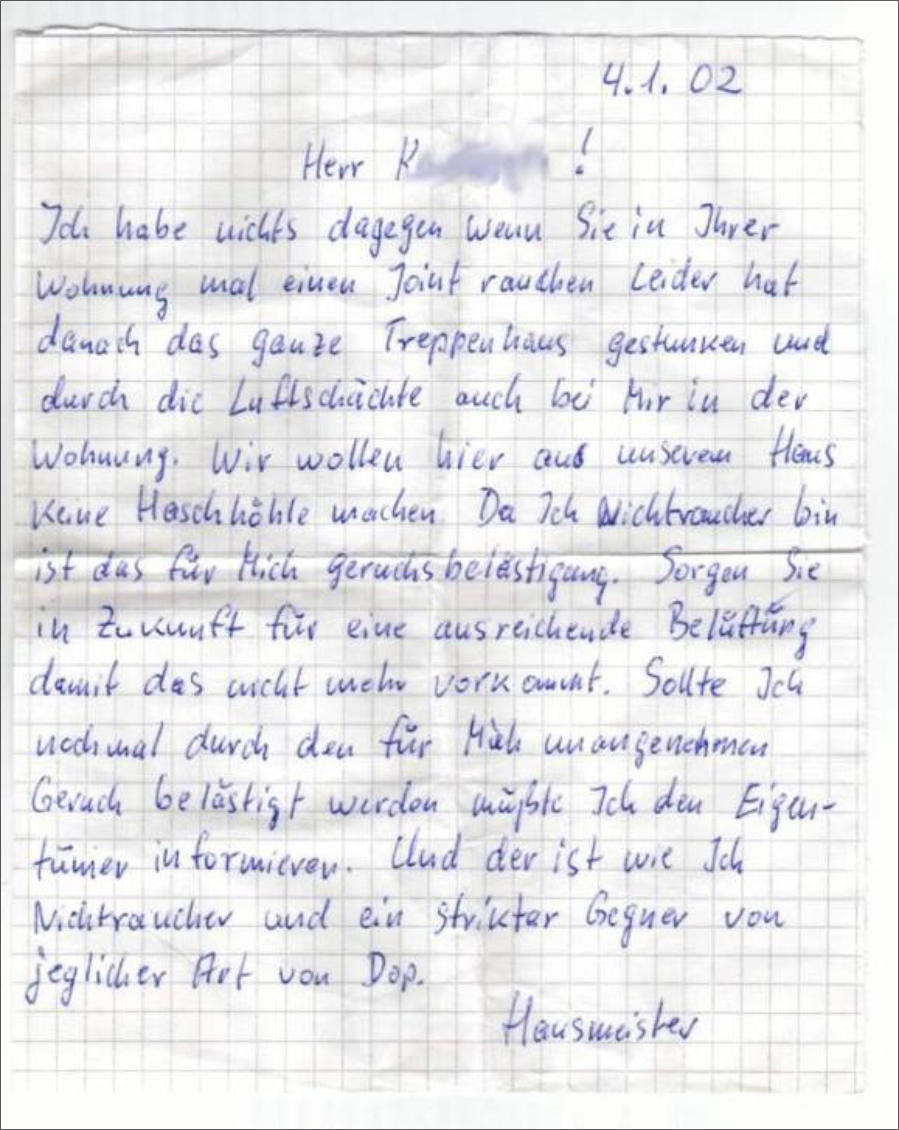 4.1. 02
Herr K !
Ich habe nichts dagegen wenn Sie in Ihrer
Wohnung mal einen Joint rauchen Leider hat
danach das ganze Treppenhaus gestunken und
durch die Luftschächte auch bei Mir in der
Wohnung. Wir wollen hier aus unserem Haus
keine Haschhöhle machen Da Ich Nichtraucher bin
ist das für Mich geruchsbelästigung. Sorgen Sie
in Zukunft für eine ausreichende Belüftung
damit das nicht mehr vorkommt. Sollte Ich
nochmal durch den für Mich unangenehmen
Geruch belästigt werden müßte Ich den Eigen-
tümer informieren. Und der ist wie Ich
Nichtraucher und ein strikter Gegner von
jeglicher Art von Dop.
Hausmeister